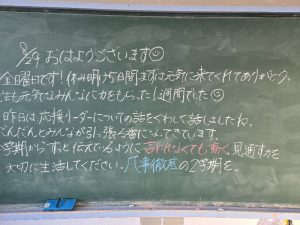 8/29 おはようございます☺
金曜日です！休み明け5日間まずは元気に来てくれてありがとう。
生も元気なみんなに力をもらった1週間でした☺
昨日は応援リーダーについての話をくわしく話しましたね。
どんどんみんなが引っ張る番になってきています。
学期からずっと伝えているように言われなくても動く、見通す力を
大切に生活してください。凡事徹底の2学期を。